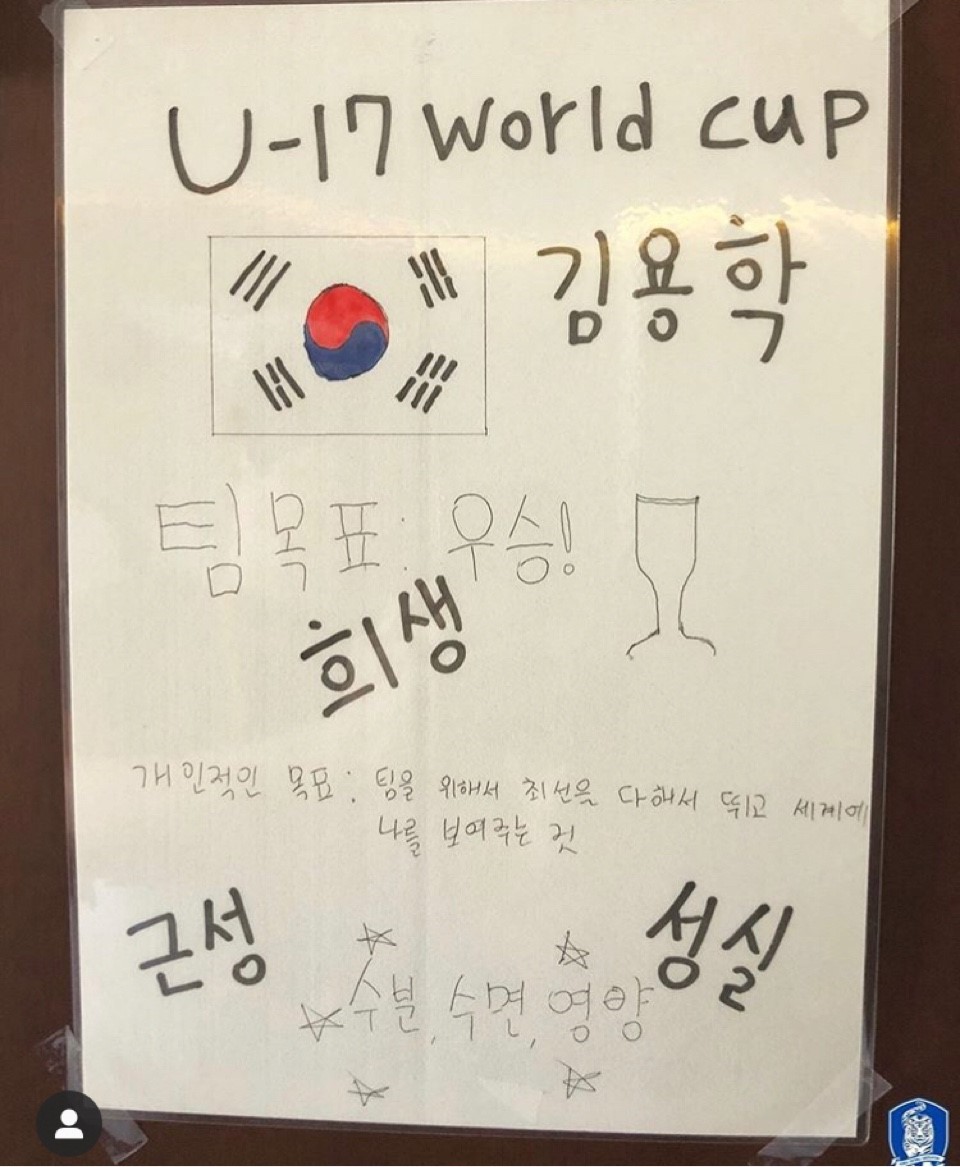 U-17 World cup
김용학
팀목표: 우승!
희생
개인적인 목표: 팀을 위해서 최선을 다해서 뛰고 세계에
나를 보여주는 것
근성
성실
수분, 수면, 영양